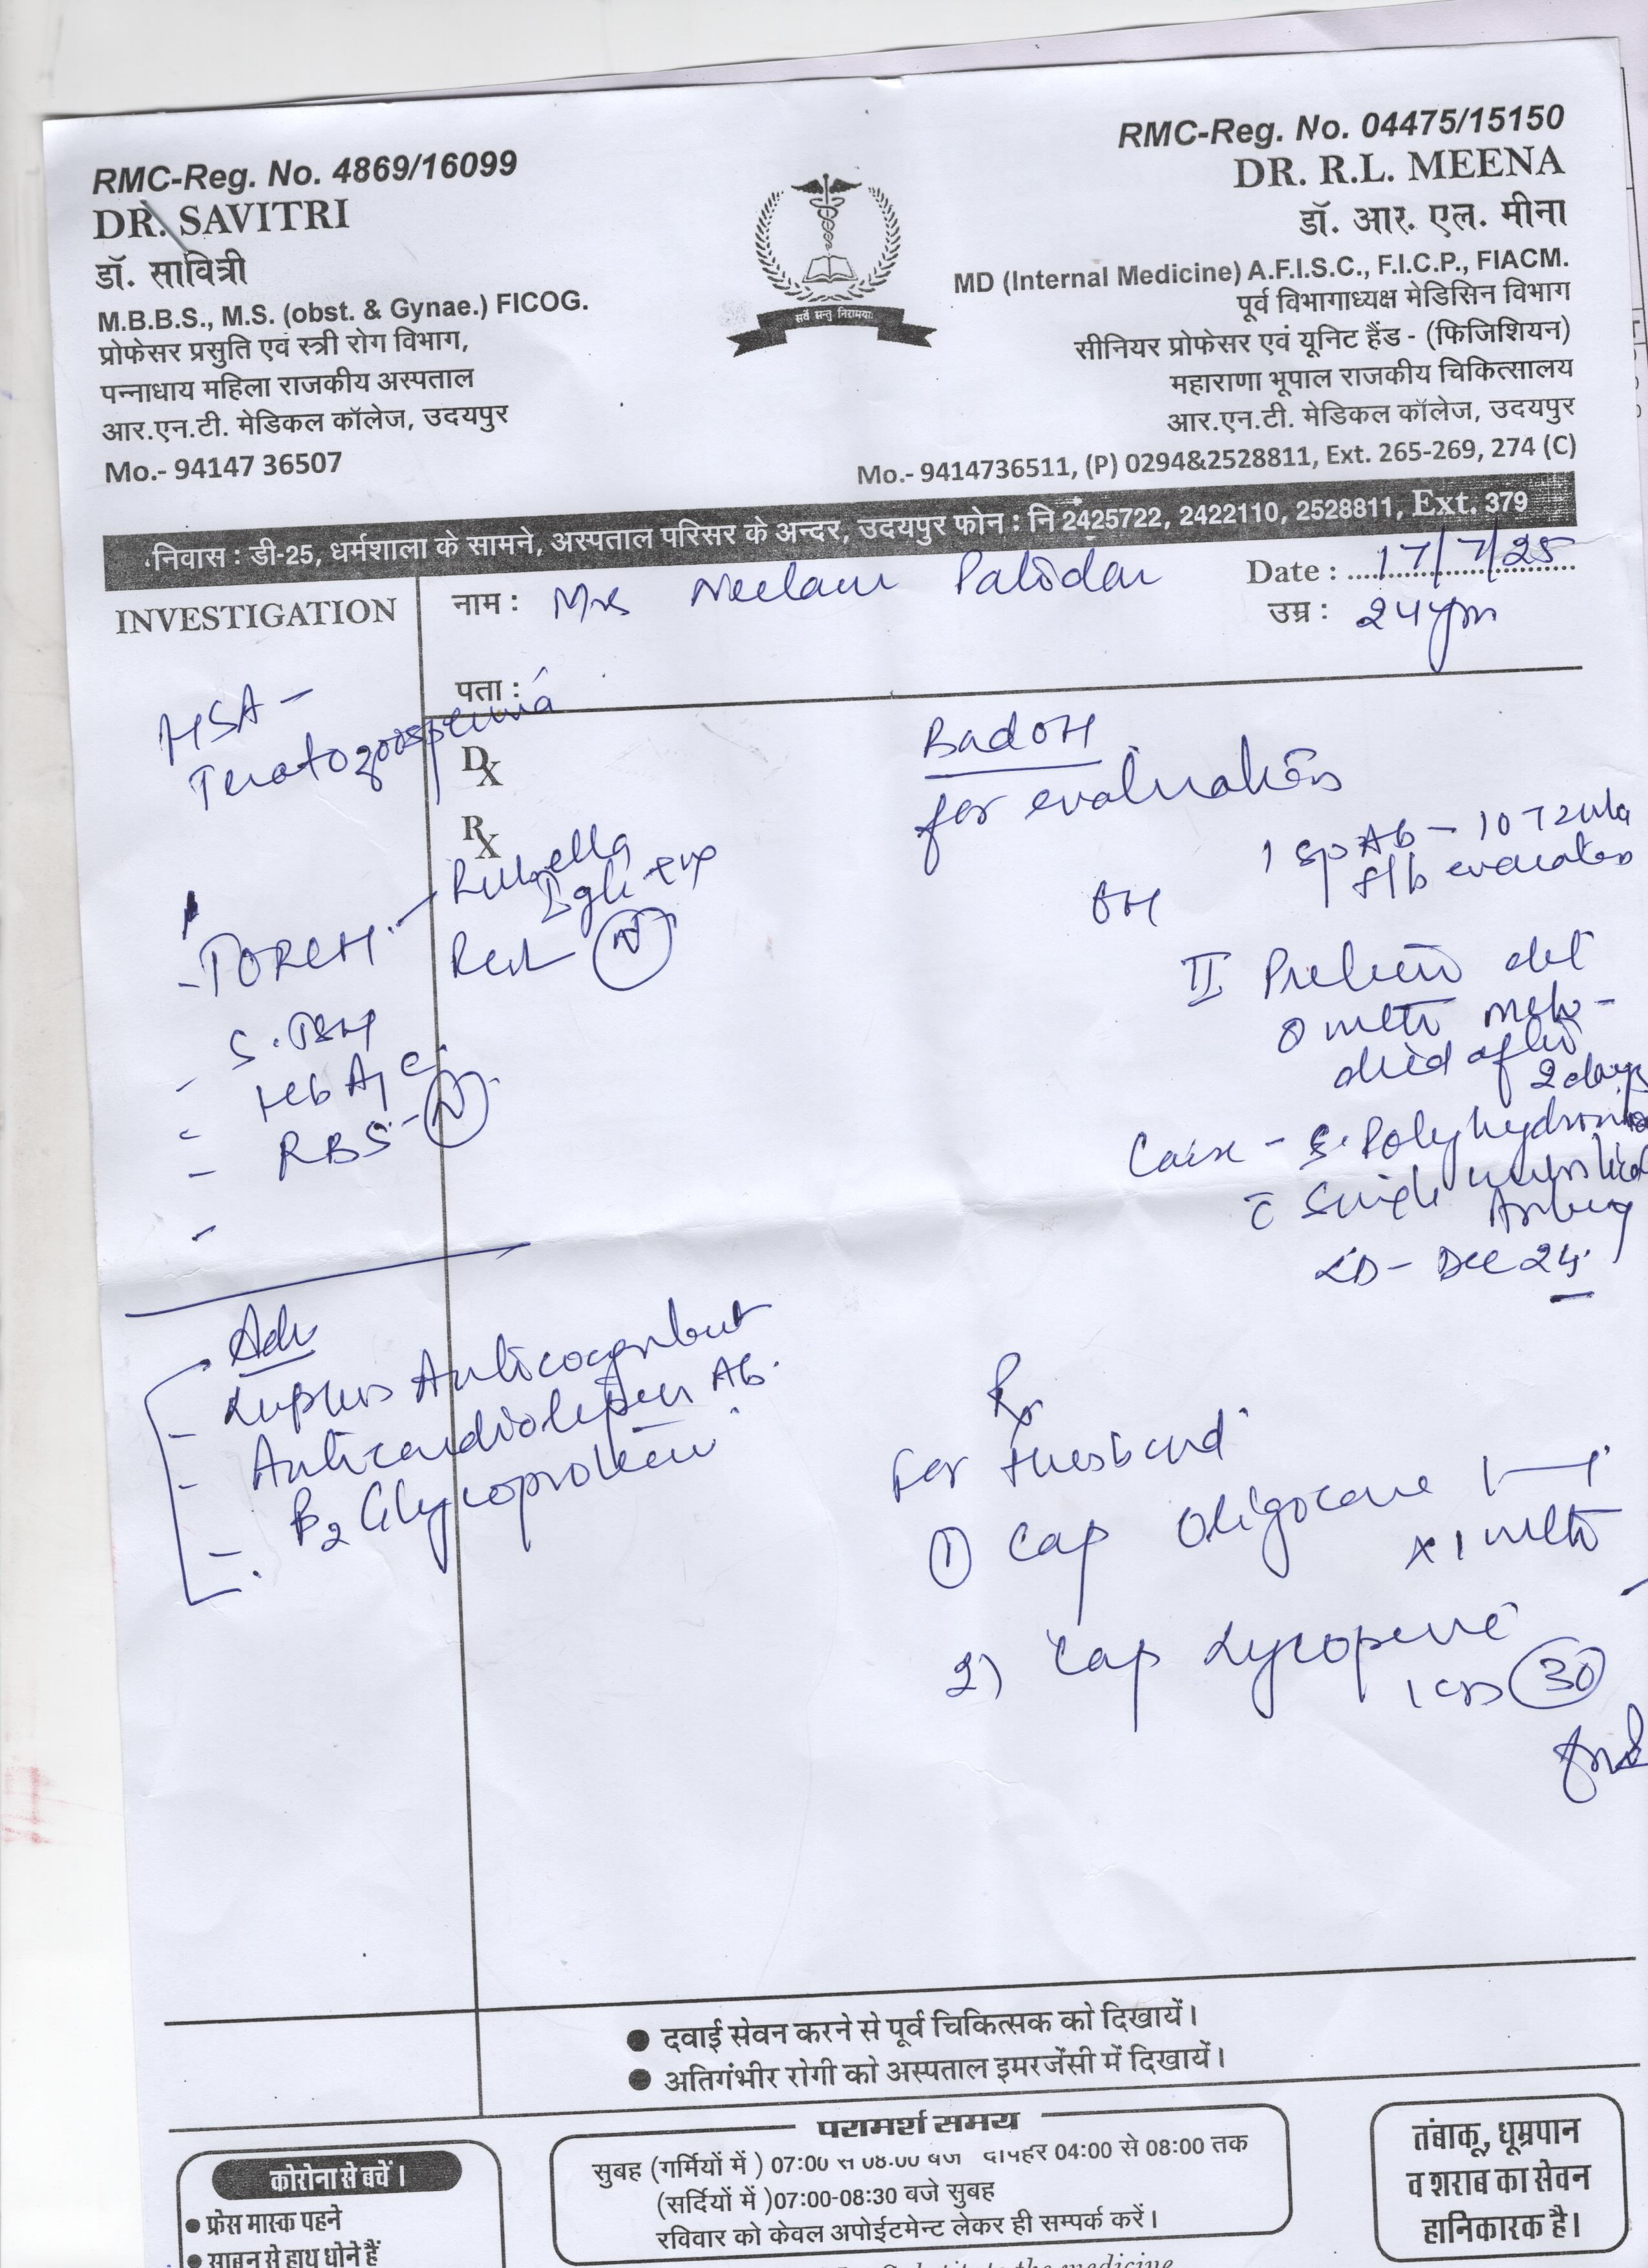 RMC-Reg. No. 4869/16099
DR. SAVITRI
डॉ. सावित्री
M.B.B.S., M.S. (obst. & Gynae.) FICOG.
प्रोफेसर प्रसुति एवं स्त्री रोग विभाग,
पन्नाधाय महिला राजकीय अस्पताल
आर.एन.टी. मेडिकल कॉलेज, उदयपुर
Mo.- 94147 36507
सर्वे सन्तु निरामयाः
RMC-Reg. No. 04475/15150
DR. R.L. MEENA
डॉ. आर. एल. मीना
MD (Internal Medicine) A.F.I.S.C., F.I.C.P., FIACM.
पूर्व विभागाध्यक्ष मेडिसिन विभाग
सीनियर प्रोफेसर एवं यूनिट हैंड - (फिजिशियन)
महाराणा भूपाल राजकीय चिकित्सालय
आर.एन.टी. मेडिकल कॉलेज, उदयपुर
Mo.- 9414736511, (P) 0294&2528811, Ext. 265-269, 274 (C)
निवास : डी-25, धर्मशाला के सामने, अस्पताल परिसर के अन्दर, उदयपुर फोन : नि 2425722, 2422110, 2528811, Ext. 379
INVESTIGATION
नाम : Mrs Neelam Patidar
Date : 17/7/25
उम्र : 24yrs
पता :
HSA -
Teratozoospermia
Dx
Rx
- TORCH - Rubella
IgG +ve
Rest (N)
- S. TSH
- HbA1C
- RBS - (N)
-
Bad OH
for evaluation
OH
1 sp Ab - 10 72
f/b evacuation
II Preterm del
8 mth
died after
2 days
Cause - S. Polyhydromnios
c Single umbilical
Artery
LD - Dec 24
Adv
- Lupus Anticoagulant
- Anticardiolipin Ab.
- B2 Glycoprotein
Rx
For Husband
① Cap Oligocare 1—1
x 1 mth
2) Cap Lycopene
1 OD (30)
● दवाई सेवन करने से पूर्व चिकित्सक को दिखायें।
● अतिगंभीर रोगी को अस्पताल इमरजेंसी में दिखायें।
कोरोना से बचें।
● फ्रेस मास्क पहने
● साबुन से हाथ धोने हैं
परामर्श समय
सुबह (गर्मियों में ) 07:00 से 08:00 बजे दोपहर 04:00 से 08:00 तक
(सर्दियों में )07:00-08:30 बजे सुबह
रविवार को केवल अपोईटमेन्ट लेकर ही सम्पर्क करें।
तंबाकू, धूम्रपान
व शराब का सेवन
हानिकारक है।
the medicine